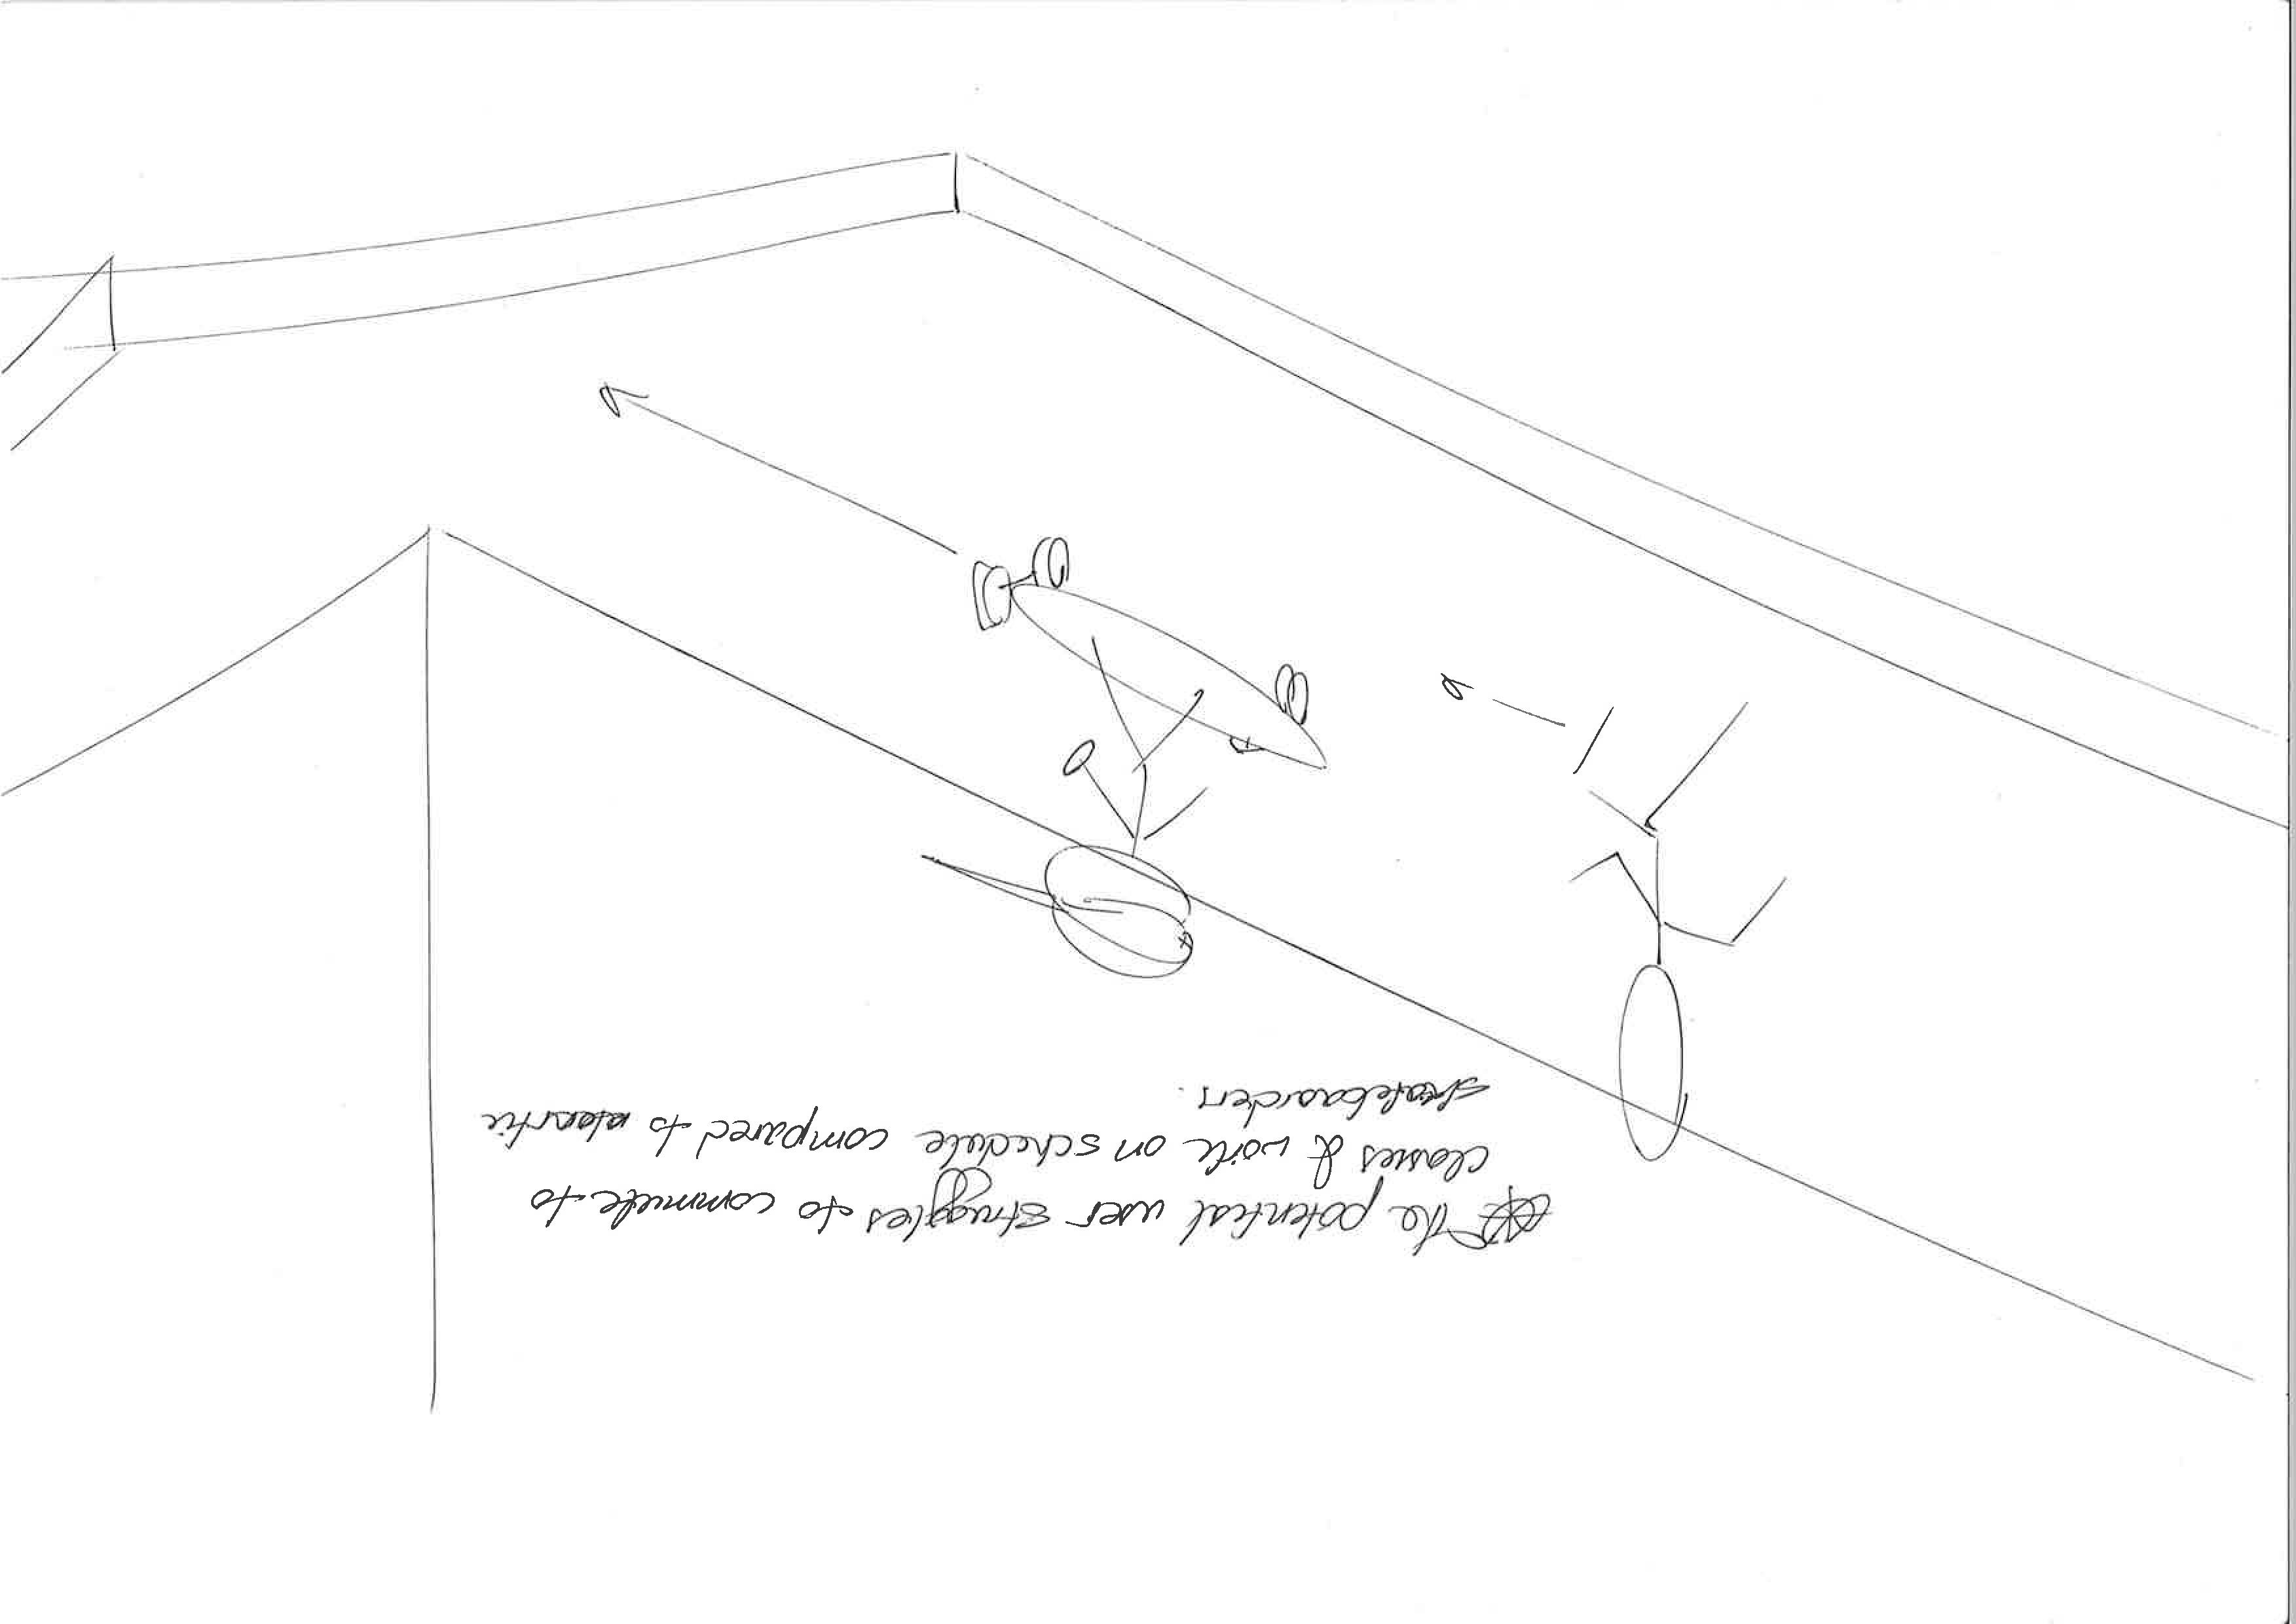 The potential user struggles to commute to
classes & work on schedule compared to
skateboarders.